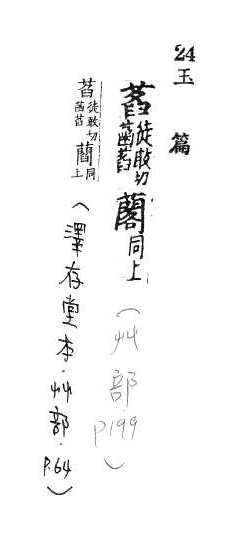 24 玉 篇
萏 徒敢切 菡萏 𧂄 同上 (艸部 P199)
萏 徒敢切 菡萏 𧂄 同上 (澤存堂本·艸部·P.64)